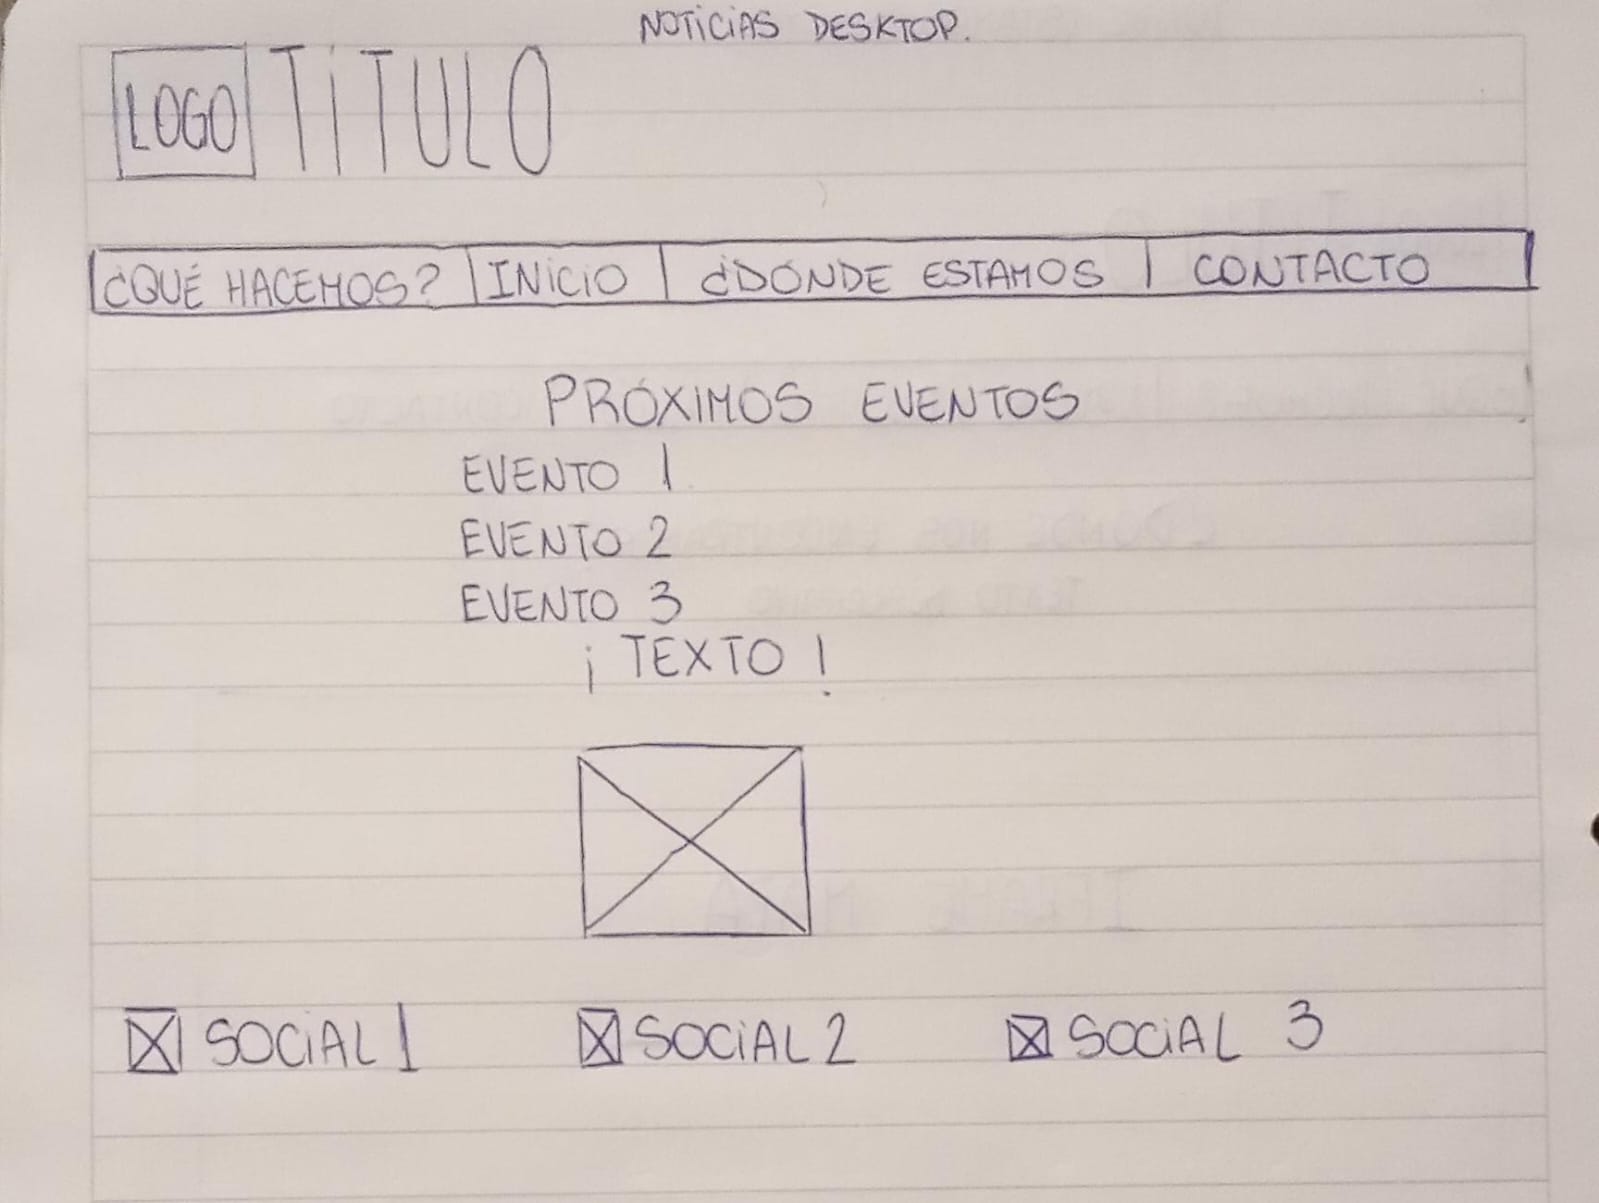 NOTICIAS DESKTOP.
LOGO TITULO
¿QUÉ HACEMOS? INICIO ¿DÓNDE ESTAMOS CONTACTO
PRÓXIMOS EVENTOS
EVENTO 1
EVENTO 2
EVENTO 3
¡TEXTO!
SOCIAL 1 SOCIAL 2 SOCIAL 3